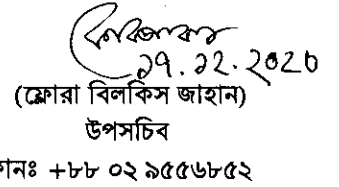 ২৭.১২.২০২০
(ফ্লোরা বিলকিস জাহান)
উপসচিব
নঃ +৮৮ ০২ ৯৫৫৬৮৫২